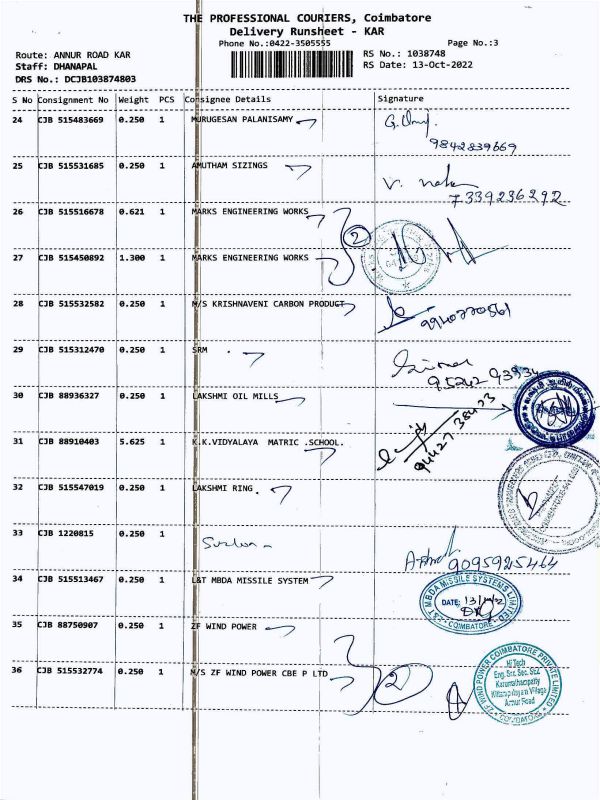 THE PROFESSIONAL COURIERS, Coimbatore
Delivery Runsheet - KAR
Phone No.:0422-3505555
Page No.:3
Route: ANNUR ROAD KAR
RS No.: 1038748
Staff: DHANAPAL
RS Date: 13-Oct-2022
DRS No.: DCJB103874803
S No Consignment No Weight PCS Consignee Details Signature
24 CJB 515483669 0.250 1 MURUGESAN PALANISAMY
9842839669
25 CJB 515531685 0.250 1 AMUTHAM SIZINGS
7339236292
26 CJB 515516678 0.621 1 MARKS ENGINEERING WORKS
2
27 CJB 515450892 1.300 1 MARKS ENGINEERING WORKS
28 CJB 515532582 0.250 1 M/S KRISHNAVENI CARBON PRODUCT
29 CJB 515312470 0.250 1 SRM
30 CJB 88936327 0.250 1 LAKSHMI OIL MILLS
31 CJB 88910403 5.625 1 K.K.VIDYALAYA MATRIC .SCHOOL.
32 CJB 515547019 0.250 1 LAKSHMI RING.
33 CJB 1220815 0.250 1
9095925464
34 CJB 515513467 0.250 1 L&T MBDA MISSILE SYSTEM
L&T MBDA MISSILE SYSTEMS LIMITED
DATE:
COIMBATORE
35 CJB 88750907 0.250 1 ZF WIND POWER
36 CJB 515532774 0.250 1 M/S ZF WIND POWER CBE P LTD
2
ZF WIND POWER COIMBATORE PRIVATE LIMITED
Hi Tech
Eng. Srz. Sec. Srz
Karumathampatty
Kittampalayam Village
Annur Road